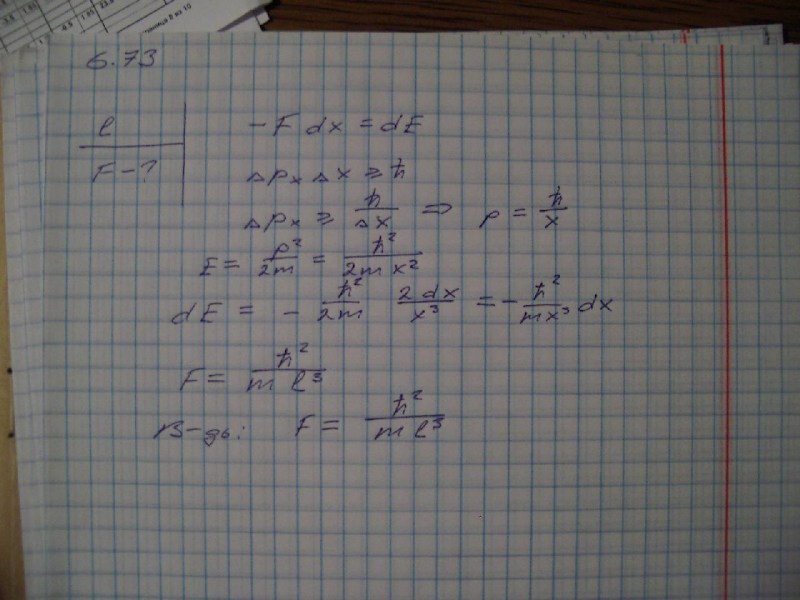 6.73
l
F - ?
- F dx = dE
Δpₓ Δx ≥ ħ
Δpₓ ≥ ħ/Δx ⇒ p = ħ/x
E = p²/2m = ħ²/2mx²
dE = - ħ²/2m 2dx/x³ = - ħ²/mx³ dx
F = ħ²/ml³
В-дь: F = ħ²/ml³